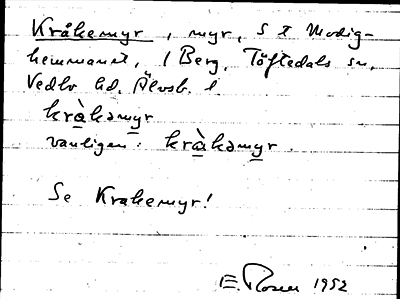 Kråkemyr, myr, S t Modig-
hemmanet, i Berg, Töftedals sn,
Vedbo hd, Älvsb. l.
kràkəmyr
vanligen: kràkəmyr.
Se Krakemyr!
E. Rosen 1952